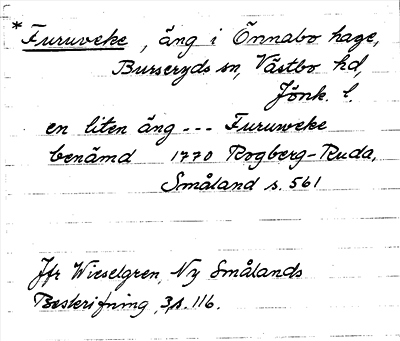 * Furuveke, äng i Önnabo hage,
Burseryds sn, Västbo hd,
Jönk. l.
en liten äng --- Furuweke
benämd 1770 Rogberg-Ruda,
Småland s. 561
Jfr Wieselgren, Ny Smålands
Beskrifning, 3, s. 116.